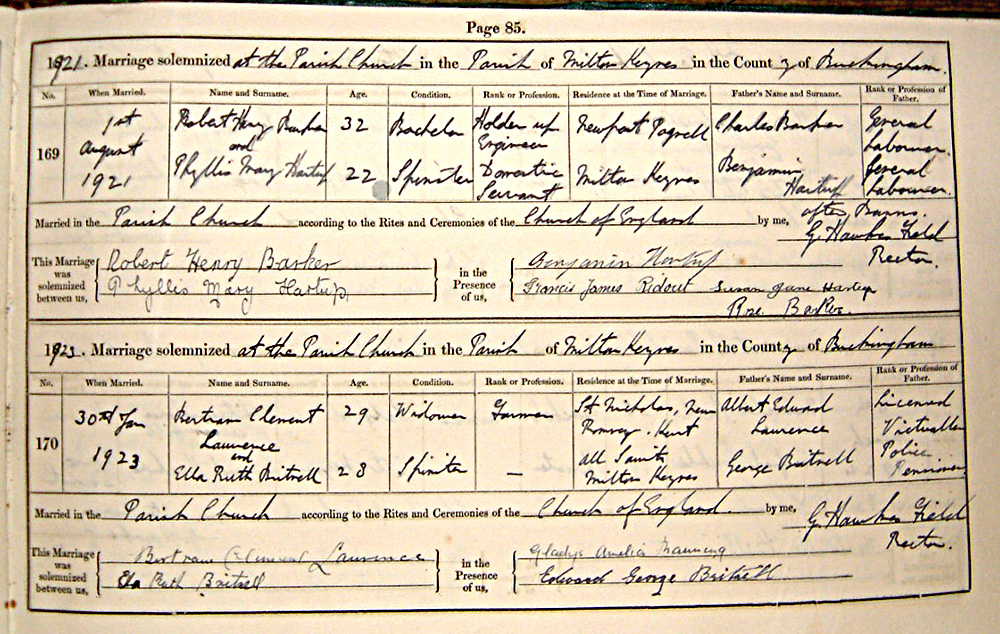 Page 85.
1921. Marriage solemnized at the Parish Church in the Parish of Milton Keynes in the County of Buckingham.
No. When Married. Name and Surname. Age. Condition. Rank or Profession. Residence at the Time of Marriage. Father's Name and Surname. Rank or Profession of Father.
169 1st August 1921 Robert Henry Barker 32 Bachelor Holder up Engineer Newport Pagnell Charles Barker General Labourer.
and
Phyllis Mary Hartup 22 Spinster Domestic Servant Milton Keynes Benjamin Hartup General Labourer.
Married in the Parish Church according to the Rites and Ceremonies of the Church of England after Banns. by me,
G. Hawkes Field
Rector.
This Marriage was solemnized between us, Robert Henry Barker
Phyllis Mary Hartup
in the Presence of us, Benjamin Hartup
Francis James Ridout Susan Jane Hartup
Rose Barker.
1923. Marriage solemnized at the Parish Church in the Parish of Milton Keynes in the County of Buckingham
No. When Married. Name and Surname. Age. Condition. Rank or Profession. Residence at the Time of Marriage. Father's Name and Surname. Rank or Profession of Father.
170 30th Jan 1923 Bertram Clement Lawrence 29 Widower St Nicholas, New Romney. Kent Albert Edward Lawrence Licensed Victualler
and
Ella Ruth Britnell 28 Spinster — All Saints Milton Keynes George Britnell Police Pensioner
Married in the Parish Church according to the Rites and Ceremonies of the Church of England. by me,
G. Hawkes Field
Rector.
This Marriage was solemnized between us, Bertram Clement Lawrence
Ella Ruth Britnell
in the Presence of us, Gladys Amelia Manning
Edward George Britnell